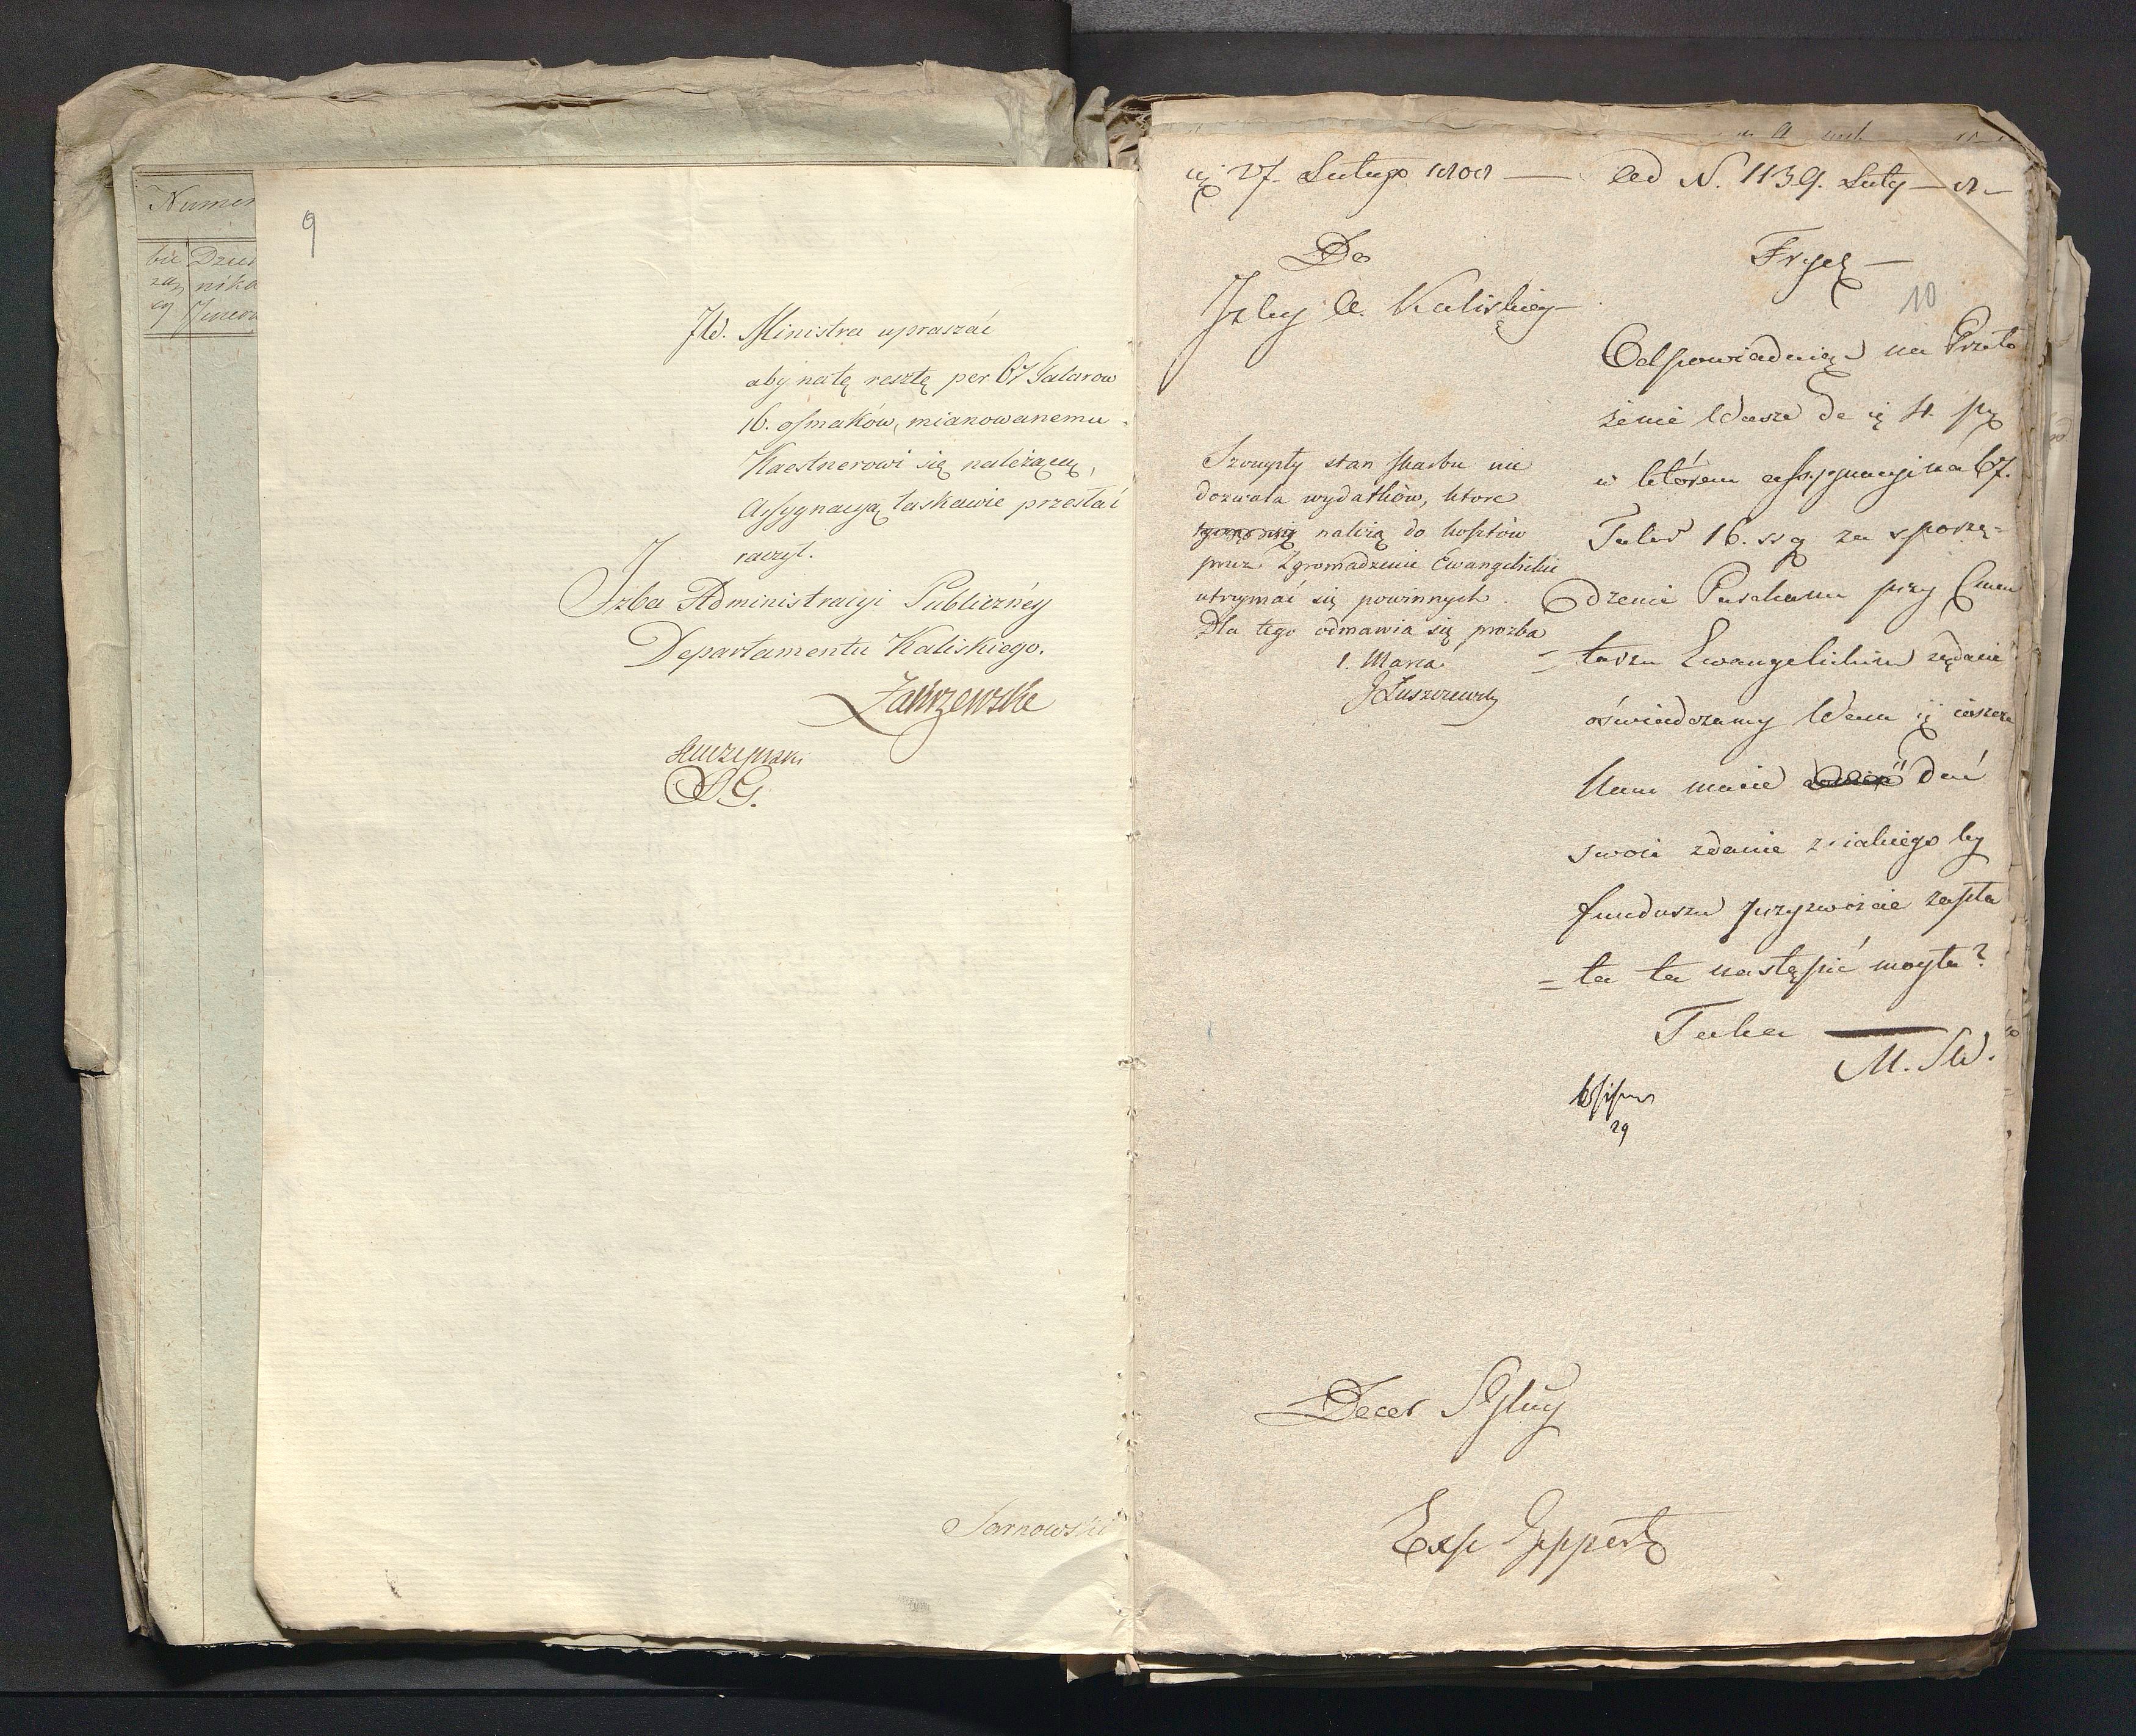 Numer
bie Dzien
żą nika
cy
9
JW. Ministra upraszać
aby na tę resztę per 67 Talarow
16. osmaków, mianowanemu
Kaestnerowi się należącą,
Assygnacyą łaskawie przesłać
raczył.
Izba Administracyi Publiczney
Departamentu Kaliskiego.
Zakrzewski
SG.
Tarnowski
27. Lutego 1808 — ad N. 1139. Luty — 8 —
Do
Izby A. Kaliskiey
Frycz —
10
Szczupły stan skarbu nie
dozwala wydatków, ktore
należą do kosztów
przez Zgromadzenie Ewangelickie
utrzymać się powinnych.
Dla tego odmawia się prozba
1. Marca
JŁuszczewski
Odpowiadaiąc na Przeło
żenie Wasze de 4. 
w którem assygnacyi na 67.
Talar 16. za sporzą=
dzenie Parkanu przy Cmen
= tarzu Ewangelickim żądacie
oświadczamy Wam iż ieszcze
Nam macie dać
swoie zdanie z iakiego by
funduszu przyzwoicie zapła
= ta ta nastąpić mogła?
Taka —
M. SW.
29
Exp Geppert